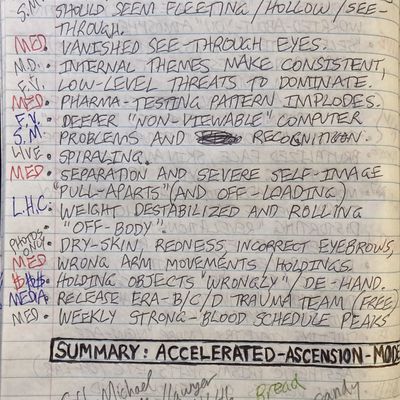 S.M. SHOULD SEEM FLEETING/HOLLOW/SEE-
THROUGH.
MED. VANISHED SEE-THROUGH EYES.
M.D. • INTERNAL THEMES MAKE CONSISTENT,
F.V. LOW-LEVEL THREATS TO DOMINATE.
MED • PHARMA-TESTING PATTERN IMPLODES.
F.V. • DEEPER "NON-VIEWABLE" COMPUTER
S.M PROBLEMS AND RECOGNITION.
LIVE • SPIRALING.
MED • SEPARATION AND SEVERE SELF-IMAGE
"PULL-APARTS" (AND OFF-LOADING)
L.H.C: WEIGHT DESTABILIZED AND ROLLING
• "OFF-BODY".
PHOTOS ONLY • DRY-SKIN, REDNESS, INCORRECT EYEBROWS,
MED WRONG ARM MOVEMENTS/HOLDINGS.
$$$ • HOLDING OBJECTS "WRONGLY"/DE-HAND.
MEDA • RELEASE ERA-B/C/D TRAUMA TEAM (FREE)
MED • WEEKLY STRONG-BLOOD SCHEDULE PEAKS
SUMMARY: ACCELERATED-ASCENSION-MODE
Michael Bread
Lawyer candy